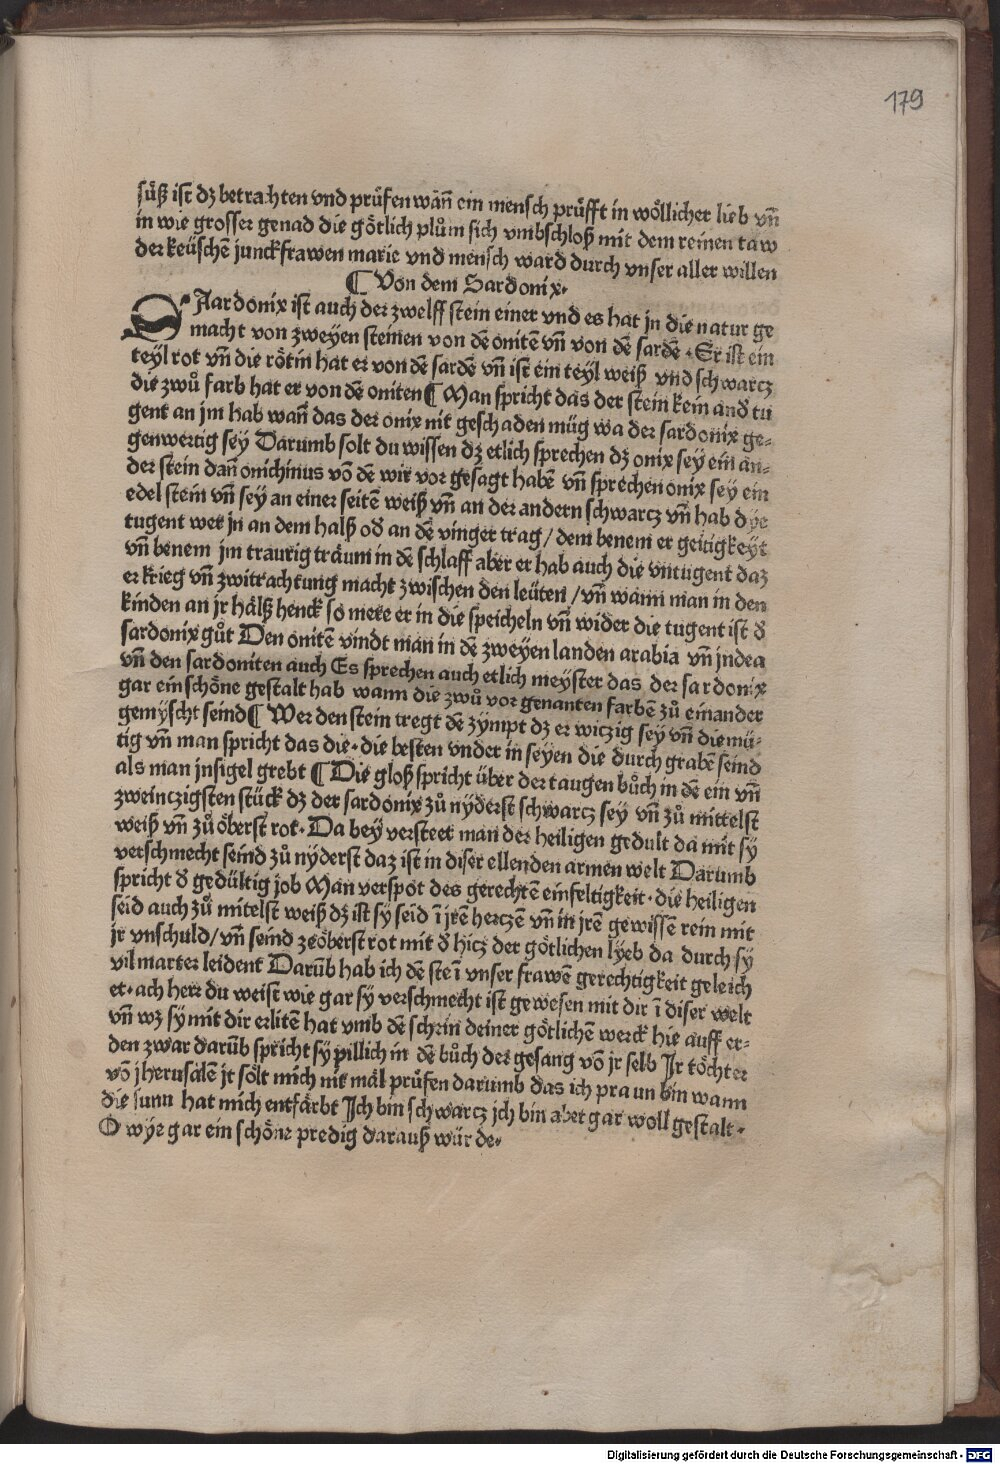 179
süß ist dz betrachten vnd prüfen wañ ein mensch prüfft in wöllicher lieb vñ
in wie grosser genad die götlich plům sich vmbschloß mit dem reinen taw
der keüschē junckfrawen marie vnd mensch ward durch vnser aller willen
¶ Von dem Sardonix.
SAardonix ist auch der zwelff stein einer vnd es hat jn die natur ge
macht von zweyen steinen von dē onitē vñ von dē sardē. Er ist ein
teyl rot vñ die rötin hat er von dē sardē vñ ist ein teyl weiß vnd schwarcz
die zwů farb hat er von dē oniten ¶ Man spricht das der stein kein and̕ tu
gent an jm hab wañ das der onix nit geschaden müg wa der sardonix ge⸗
genwertig sey Darumb solt du wissen dz etlich sprechen dz onix sey ein an⸗
der stein dañ onichinus vō dē wir vor gesagt habē vñ sprechen onix sey ein
edel stein vñ sey an einer seitē weiß vñ an der andern schwarcz vñ hab dye
tugent wer jn an dem halß od̕ an dē vinger trag / dem benem er geitigkeyt
vñ benem jm traurig träum in dē schlaff aber er hab auch die vntugent daz
er krieg vñ zwitrachtung macht zwischen den leüten / vñ wann man in den
kinden an jr hälß henck so mere er in die speicheln vñ wider die tugent ist d̕
sardonix gůt Den onitē vindt man in dē zweyen landen arabia vñ jndea
vñ den sardoniten auch Es sprechen auch etlich meyster das der sardonix
gar ein schöne gestalt hab wann die zwů vor genanten farbē zů einander
gemyscht seind ¶ Wer den stein tregt dē zympt dz er wiczig sey vñ diemü⸗
tig vñ man spricht das die. die besten vnder in seyen die durch grabē seind
als man jnsigel grebt ¶ Die gloß spricht über der taugen bůch in dē ein vñ
zweinczigsten stück dz der sardonix zů nyderst schwarcz sey vñ zů mittelst
weiß vñ zů öberst rot. Da bey versteet man der heiligen gedult da mit sy
verschmecht seind zů nyderst daz ist in diser ellenden armen welt Darumb
spricht d̕ gedültig job Man verspot des gerechtē einfeltigkeit. die heiligen
seid auch zů mitelst weiß dz ist sy seid ī jrē herczē vñ in jrē gewissē rein mit
jr vnschuld / vñ seind zeöberst rot mit d̕ hicz der götlichen lyeb da durch sy
vil marter leident Darūb hab ich dē steī vnser frawē gerechtigkeit geleich
et. ach herr du weist wie gar sy verschmecht ist gewesen mit dir ī diser welt
vñ wz sy mit dir erlitē hat vmb dē schrin deiner götlichē werck hie auff er⸗
den zwar darūb spricht sy pillich in dē bůch der gesang vō jr selb Jr töchter
vō jherusalē jr sölt mich nit mal prüfen darumb das ich praun bin wann
die sunn hat mich entfärbt Jch bin schwarcz jch bin aber gar woll gestalt.
O wye gar ein schöne predig darauß würde.
Digitalisierung gefördert durch die Deutsche Forschungsgemeinschaft - DFG